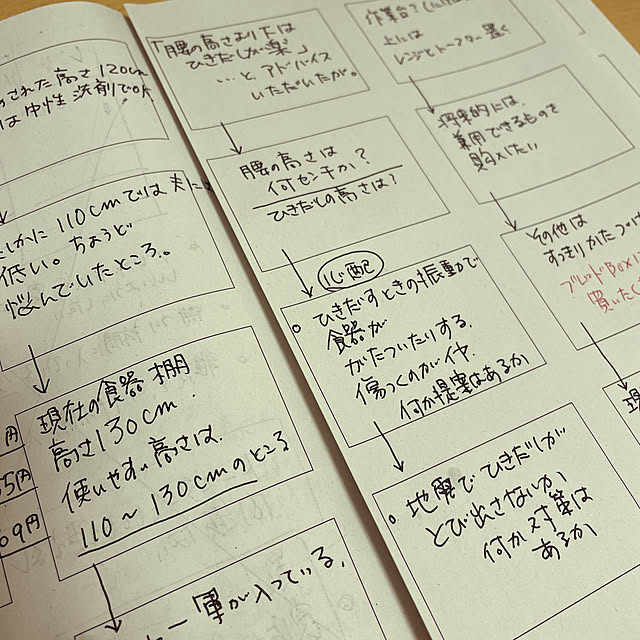 された高さ120cm
は中性洗剤でOK
しかに110cmでは夫には
低い。ちょうど
悩んでいたところ。
現在の食器棚
高さ130cm.
使いやすい高さは.
110〜130cmのところ
円
55円
69円
一軍が入っている.
「腰の高さより下は
ひきだしが楽」
…と アドバイス
いただいたが。
腰の高さは
何センチか?
ひきだしの高さは?
心配
ひきだすときの振動で
食器が
がたついたりする.
傷つくのがイヤ.
何か提案はあるか
地震でひきだしが
とび出さないか
何か対策は
あるか
作業台
上には
レンジとトースター置く
将来的には、
兼用できるものを
購入したい
その他は
すっきりかたづけ
ブレッドBOXは
買いたく
現